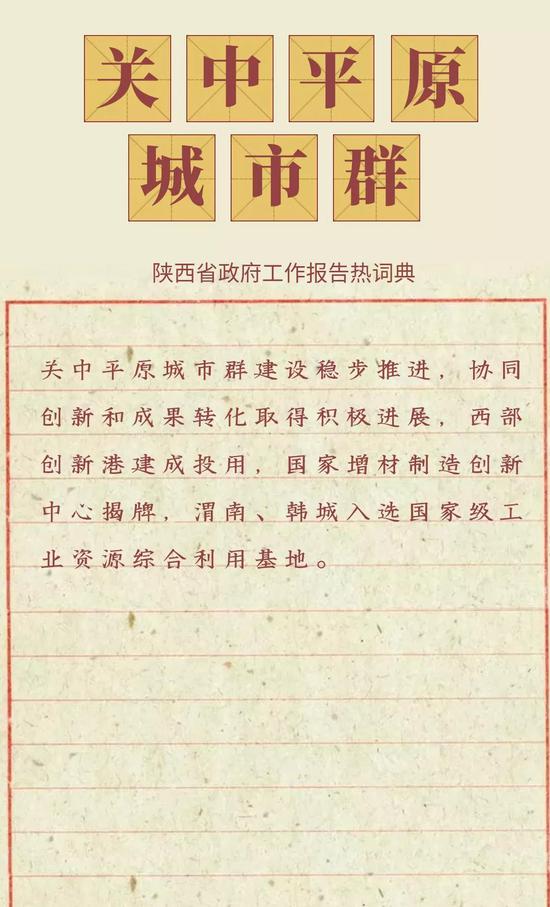 关中平原
城市群
陕西省政府工作报告热词典
关中平原城市群建设稳步推进，协同
创新和成果转化取得积极进展，西部
创新港建成投用，国家增材制造创新
中心揭牌，渭南、韩城入选国家级工
业资源综合利用基地。